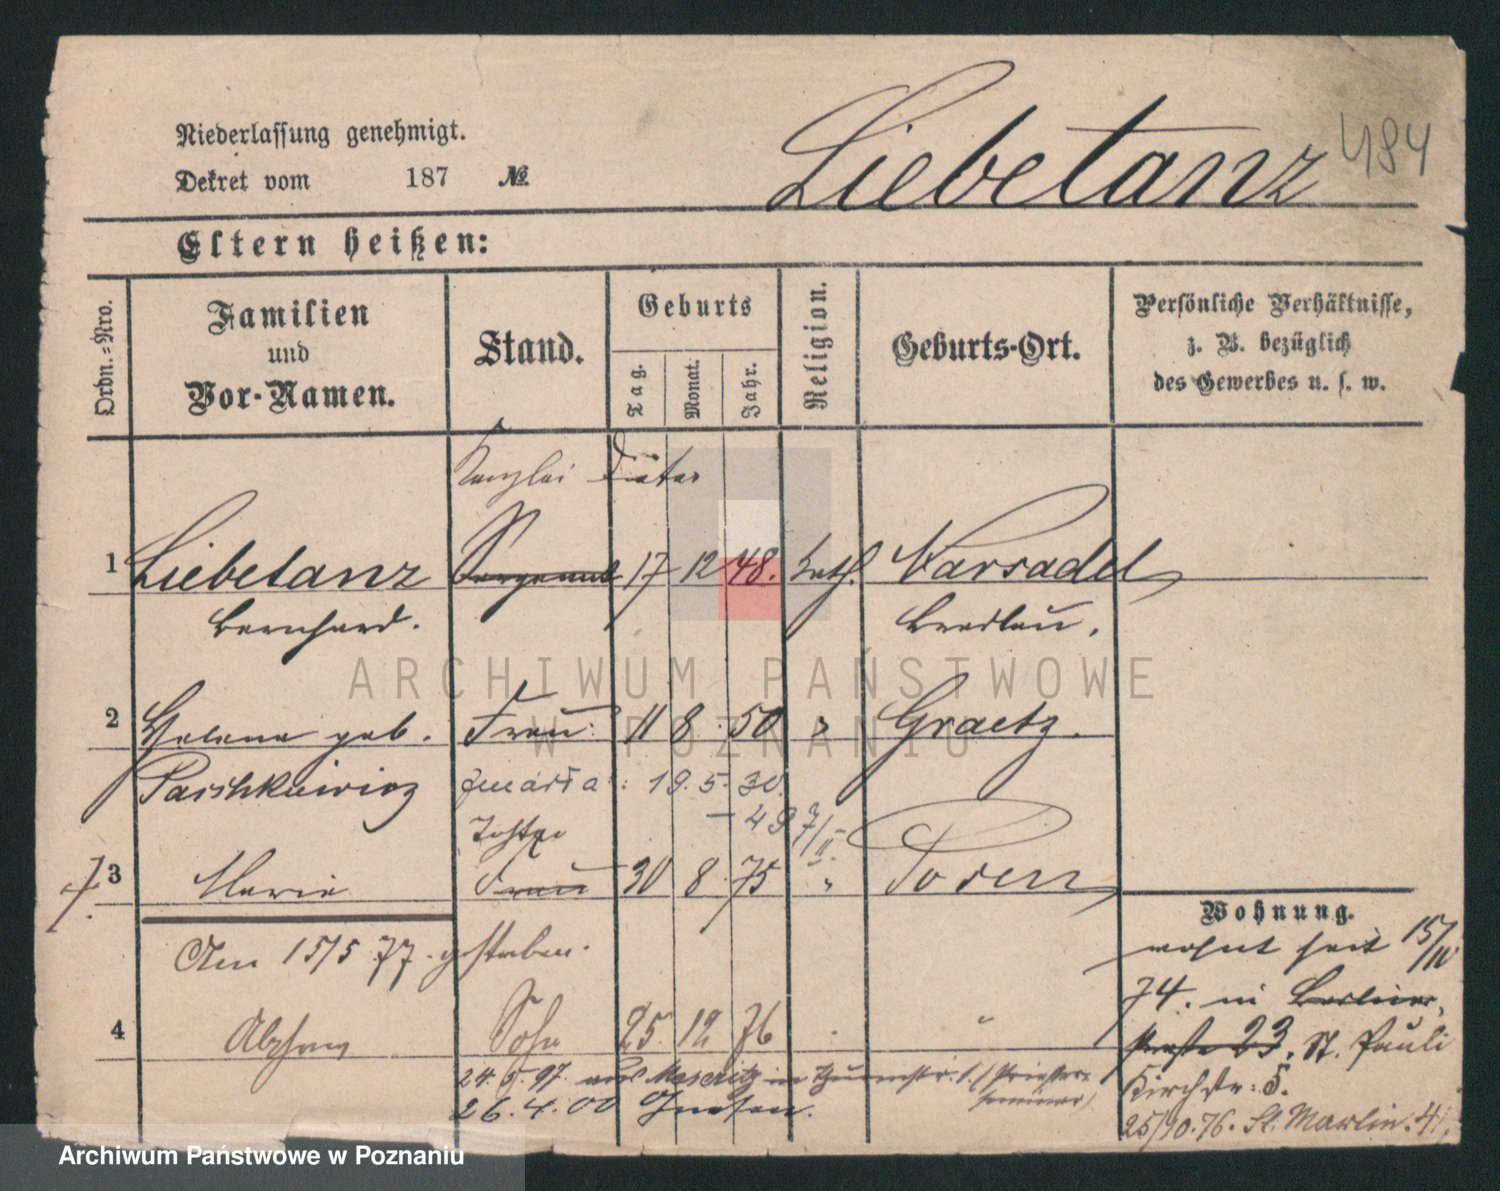 Liebetanz 484
Niederlassung genehmigt.
Dekret vom 187 №
Eltern heißen:
Ordn.-Nro.
Familien und Vor-Namen.
Stand.
Geburts
Tag.
Monat.
Jahr.
Religion.
Geburts-Ort.
Persönliche Verhältnisse,
z. B. bezüglich
des Gewerbes u. s. w.
Kanzlei Diätar
1 Liebetanz Sergeant 17 12 48. kath.
Bernhard. Breslau.
2 Helene geb. Frau 11 8 50 " Graetz.
19. 5. 30.
Tochter
3 Marie Frau 30 8 75 " Posen
Am 15/5 77. gestorben.
4 Alphons Sohn 25. 12 76 "
24. 5. 97. aus Meseritz in
26. 4. 00 Gnesen.
Wohnung.
wohnt seit 15/IV
74. in Berliner-
straße 23. St. Pauli
Kirchstr: 5.
25/10. 76. St. Martin. 41.
ARCHIWUM PAŃSTWOWE
W POZNANIU
Archiwum Państwowe w Poznaniu